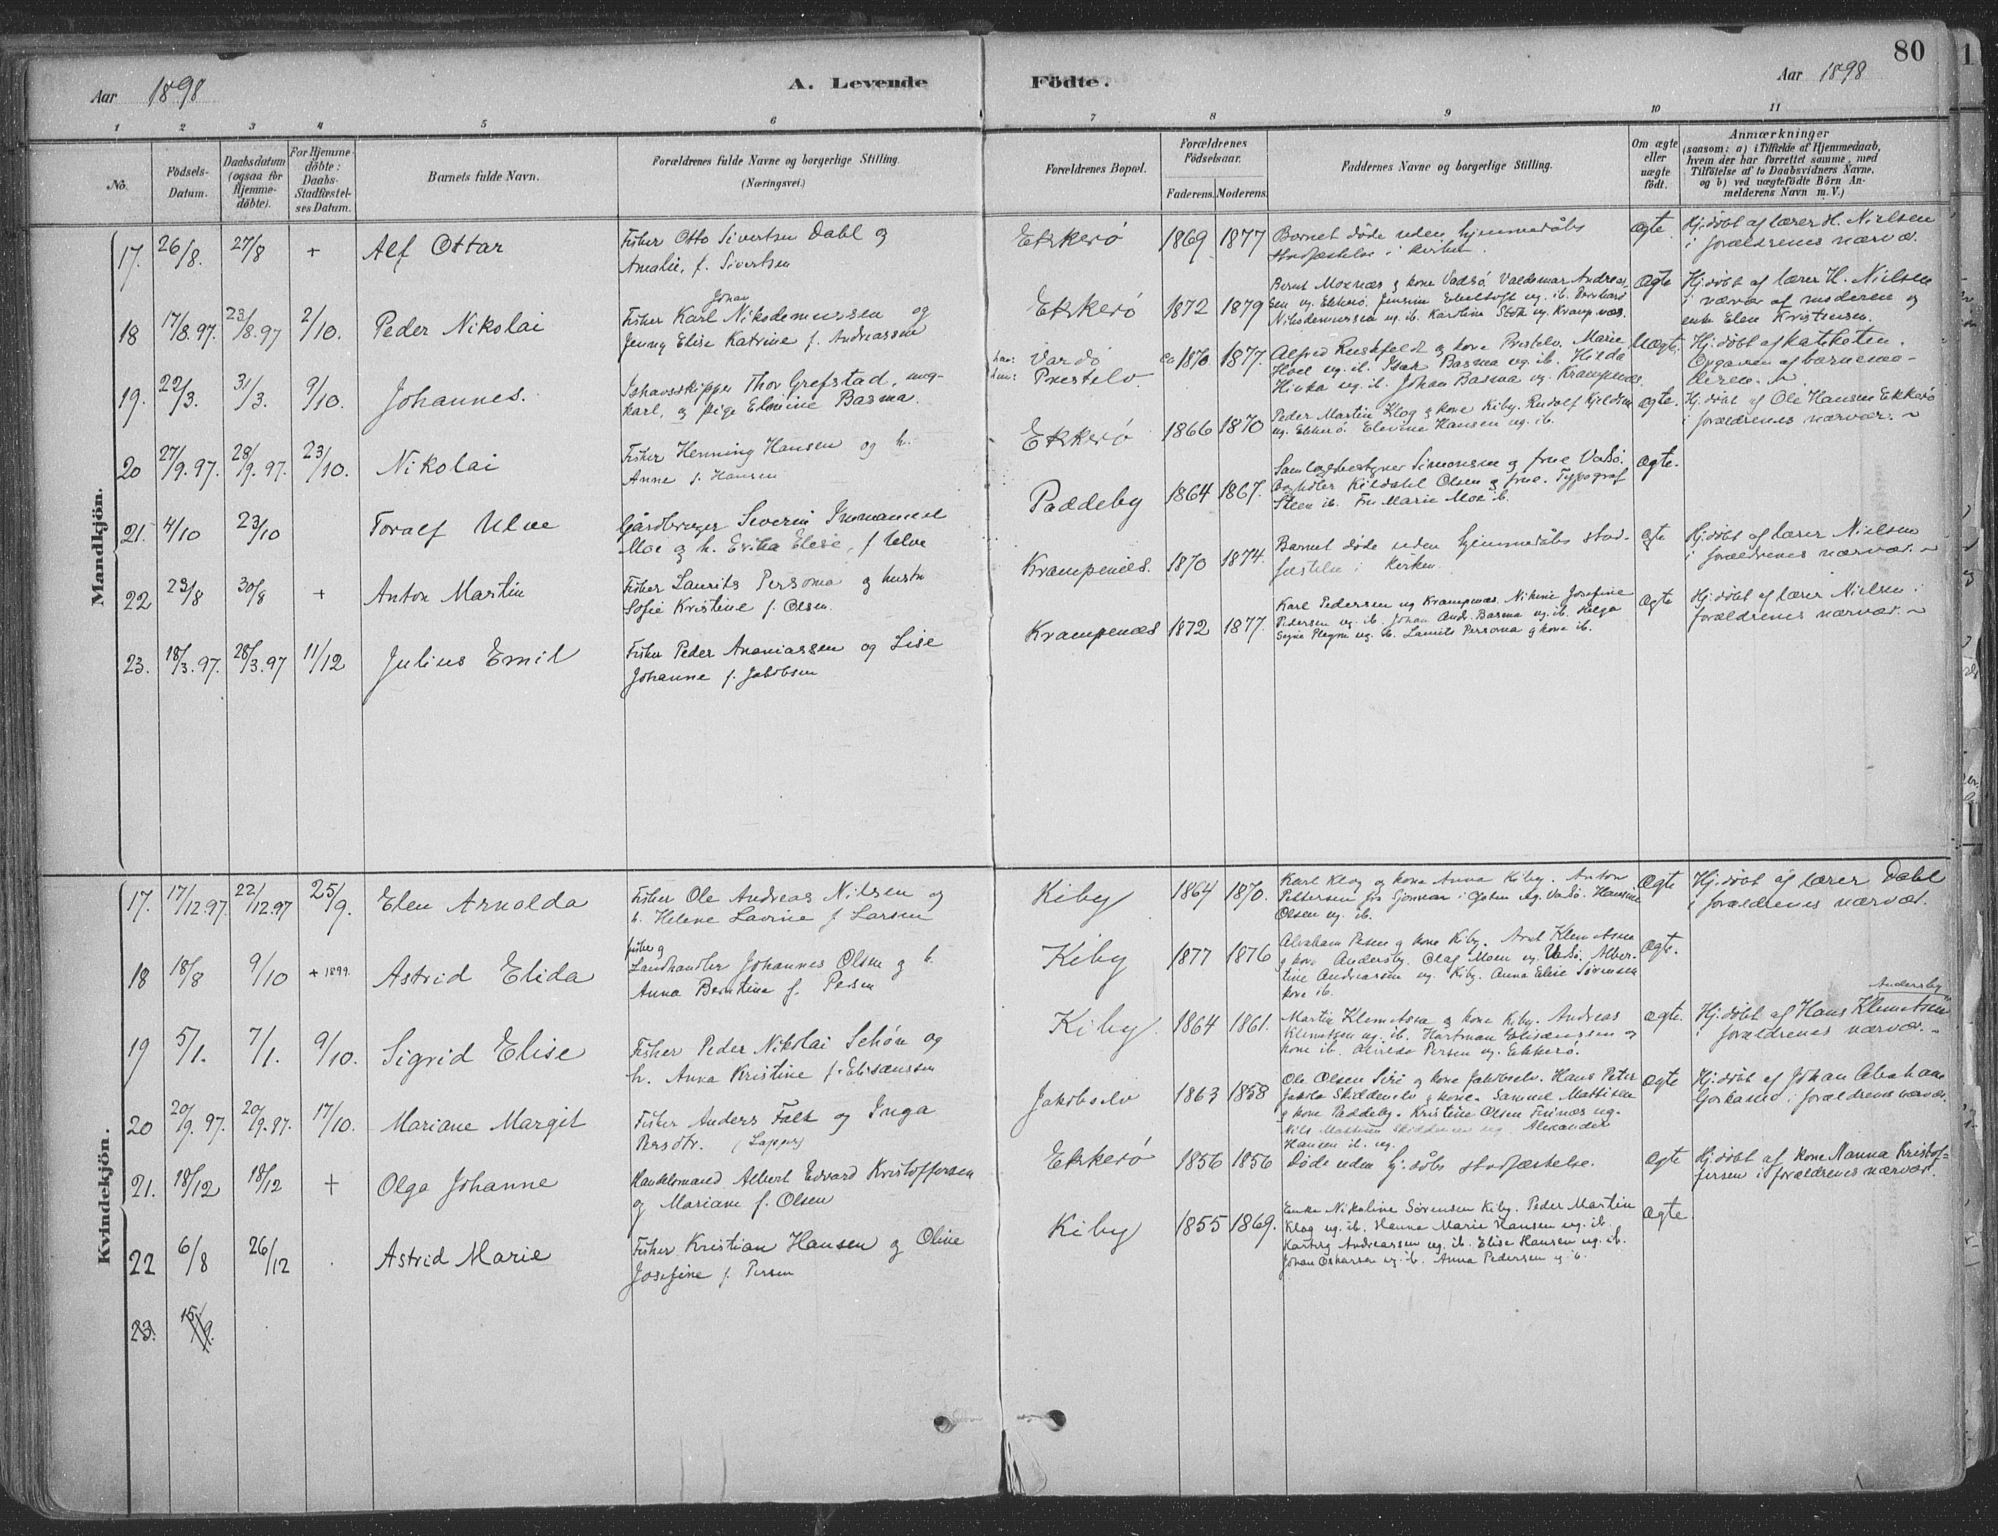 80
Aar 1898
A. Levende
Födte.
Aar 1898
1 2 3 4 5 6 7 8 9 10 11
No.
Födsels-
Datum.
Daabsdatum
(ogsaa for
Hjemme-
döbte).
For Hjemme-
döbte:
Daabs-
Stadfæstel-
ses Datum.
Barnets fulde Navn.
Forældrenes fulde Navne og borgerlige Stilling.
(Næringsvei.)
Forældrenes Bopæl.
Forældrenes
Födselsaar.
Faderens. Moderens.
Faddernes Navne og borgerlige Stilling.
Om ægte
eller
uægte
födt.
Anmærkninger
(saasom: a) i Tilfælde af Hjemmedaab,
hvem der har forrettet samme, med
Tilföielse af to Daabsvidners Navne,
og b) ved uægtefödte Börn An-
melderens Navn m. V.)
Mandkjön.
17. 26/8. 27/8 + Alf Ottar
Fisker Otto Sivertsen Dahl og
Amalie, f. Sivertsen
Ekkerö 1869 1877
Barnet døde uden hjemmedåbs
stadfæstelse i kirken.
Ægte.
Hj.døbt af lærer H. Nielsen
i forældrenes nærvær.
18 17/8.97. 23/8.97 2/10. Peder Nikolai
Johan
Fisker Karl Nikodemussen og
Jenny Elise Katrine f. Andreassen
Ekkerö 1872 1879
Bernt Moenæs & kone Vadsø Valdemar Andreas-
sen ug. Ekkerö. Jensine ug. ib. Bernhard
Nikodemussen ug. ib. Karoline ug. Krampenæs.
Ægte
Hj.døbt af lærer H. Nielsen
i nærvær af moderen og
enke Elen Kristensen.
19. 22/3. 31/3. 9/10. Johannes.
Ishavsskipper Thor Grefstad, ung-
karl, og pige Elmine Basma.
Vardö
Prestelv.
ca 1870 1877
Alfred Ruskfeldt & kone Prestelv. Marie
ug. ib. Isak Basma ug. ib. Hilda
ug. ib. Johan Basma ug. Krampenæs.
Uægte.
Hj.døbt af katketen.
Opgaven af barnemo-
deren.
20 27/9.97. 28/9.97. 23/10. Nikolai
Fisker Henning Hansen og h.
Anne f. Hansen
Ekkerö 1866 1870
Peder Martin Klog & kone Kiby. Rudolf Kjeldsen
ug. Ekkerö. Elevine Hansen ug. ib.
ægte.
Hj.døbt af Ole Hansen Ekkerö
i forældrenes nærvær.
21. 4/10 23/10 Toralf Ulve
Gårdbruger Severin
Moe og h. Erika Elise, f. Ulve
Paddeby 1864 1867.
Samlagsbestyrer Simonsen & frue Vadsö.
Kildahl Olsen & frue. Typograf
Steen ib. Fru Marie Moe ib.
ægte.
22 23/8 30/8 + Anton Martin
Fisker Laurits Persoma og hustru
Sofie Kristine f. Olsen.
Krampenæs. 1870 1874.
Barnet døde uden hjemmedåbs stad-
fæstelse i kirken
ægte
Hj.døbt af lærer Nielsen
i forældrenes nærvær.
23. 18/3.97. 28/3.97 11/12 Julius Emil
Fisker Peder Ananiassen og Lise
Johanne f. Jakobsen
Krampenæs 1872 1877.
Karl Pedersen ug Krampenæs. Josefine
Pedersen ug. ib. Johan And. Basma ug. ib. Helga
Signe ug. ib. Laurits Persoma & kone ib.
Ægte
Hj.døbt af lærer Nielsen.
forældrenes nærvær.
Kvindekjön.
17. 17/12.97. 22/12.97 25/9. Elen Arnolda
Fisker Ole Andreas Nilsen og
h. Helene Lavine f Larsen
Kiby 1864 1870.
Karl Klog og kone Anna Kiby. Anton
Pettersen ug. Vadsö. Hansine
Olsen ug. ib.
Ægte
Hj.døbt af lærer Dahl
i forældrenes nærvær.
18 18/8 9/10 + 1899. Astrid Elida
fisker &
Landhandler Johannes Olsen & h.
Anna Berntine f. Persen
Kiby 1877 1876
Abraham Persen & kone Kiby. Klemetsen
& kone Andersby. Olaf Moen ug Vadsö. Alber-
tine Andreassen ug. Kiby. Anna Elise Sørensen
kone ib.
Ægte.
19 5/1. 7/1. 9/10. Sigrid Elise
Fisker Peder Nikolai Schön og
h. Anna Kristine f. Elisæussen
Kiby 1864 1861.
Martin Klemetsen & kone Kiby. Andreas
Klemetsen ug. ib. Hartman Elisæussen &
kone ib. Persen ug. Ekkerö.
ægte.
Andersby
Hj.døbt af Hans Klemetsen
i forældrenes nærvær.
20 20/9.97. 20/9.97. 17/10. Mariane Margit
Fisker Anders Falk og Inga
Persdtr. (Lapper)
Jakobselv 1863 1858
Ole Olsen Siri & kone Jakobselv. Hans Peter
Jakola Skiddenelv & kone. Sammel Mattisen
& kone Paddeby. Kristine Olsen Finnæs ug.
Nils Mattisen Skiddenelv ug. Alexander
Hansen ib. ug.
ægte
Hj.døbt af Johan Abraham
i forældrenes nærvær.
21. 18/12 18/12 + Olga Johanne
Handelsmand Albert Edvard Kristoffersen
og Mariane f. Olsen
Ekkerö 1856 1856
Døde uden hj.dåbs stadfæstelse.
Ægte
Hj.døbt af kone Nanna Kristof-
fersen i forældrenes nærvær.
22 6/8 26/12 Astrid Marie
Fisker Kristian Hansen og Oline
Josefine f. Persen
Kiby 1855 1869.
Enke Nikoline Sørensen Kiby. Peder Martin
Klog ug. ib. Hanna Marie Hansen ug. ib.
Hartvig Andreassen ug. ib. Elise Hansen ug. ib.
Johan Oskarsen ug. ib. Anna Pedersen ug ib.
ægte.
23. 15/9.